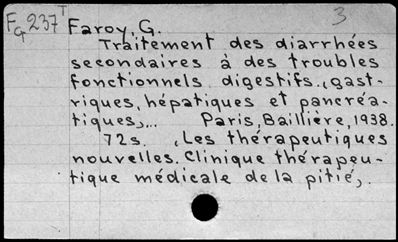 3
F_G 237^T Faroy, G.
Traitement des diarrhées
secondaires à des troubles
fonctionnels digestifs, (gast-
riques, hépatiques et pancréa-
tiques),.. Paris, Baillière, 1938.
72s. (Les thérapeutiques
nouvelles. Clinique thérapeu-
tique médicale de la pitié).